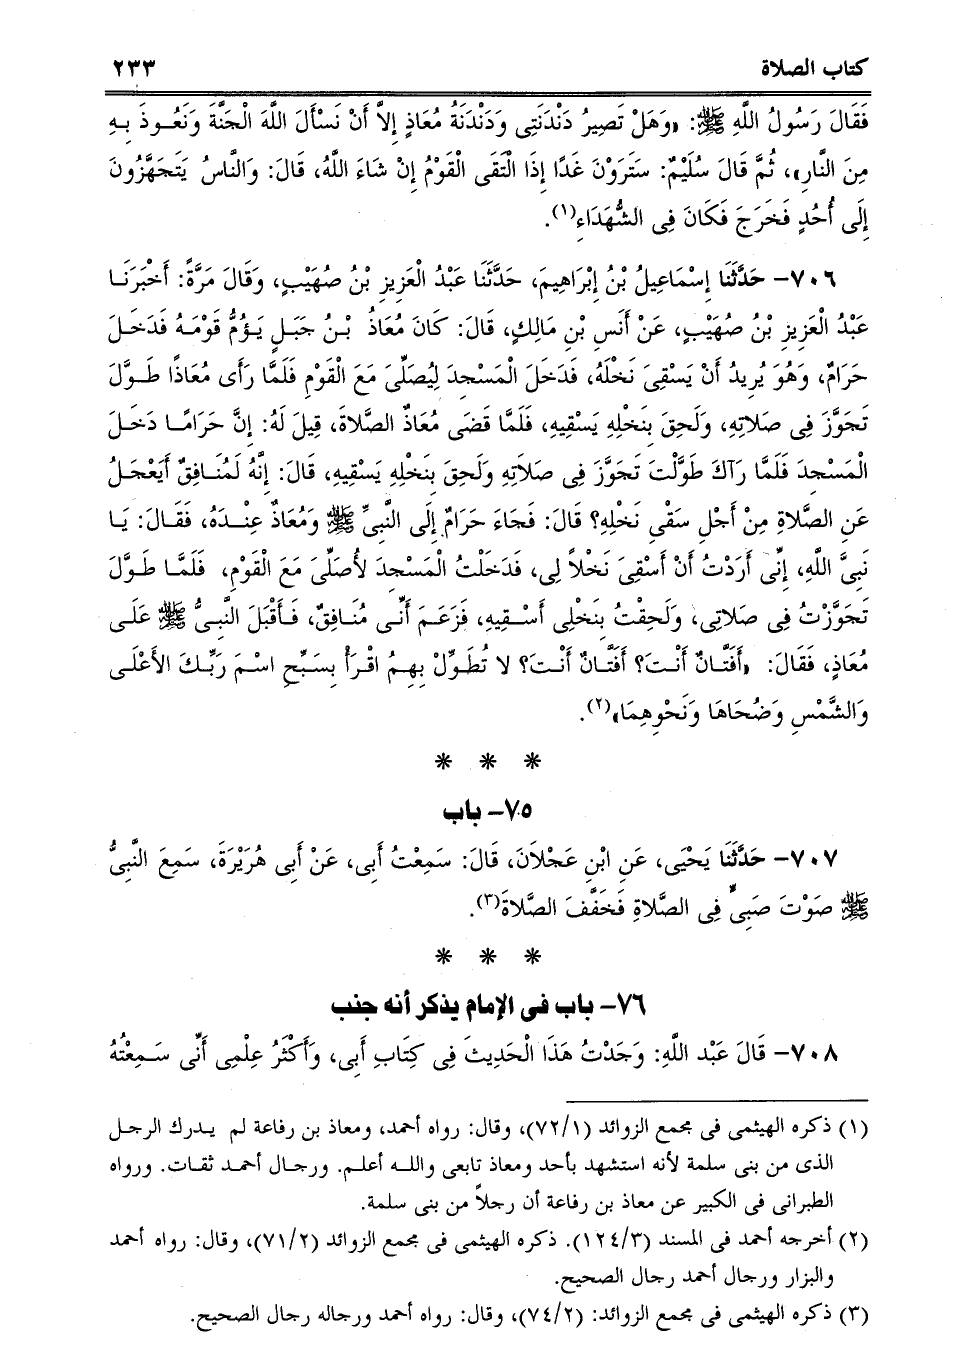 كتاب الصلاة ٢٣٣
فَقَالَ رَسُولُ اللَّهِ ﷺ: «وَهَلْ تَصِيرُ دَنْدَنَتِى وَدَنْدَنَةُ مُعَاذٍ إِلاَّ أَنْ نَسْأَلَ اللَّهَ الْجَنَّةَ وَنَعُوذَ بِهِ
مِنَ النَّارِ»، ثُمَّ قَالَ سُلَيْمٌ: سَتَرَوْنَ غَدًا إِذَا الْتَقَى الْقَوْمُ إِنْ شَاءَ اللَّهُ، قَالَ: وَالنَّاسُ يَتَجَهَّزُونَ
إِلَى أُحُدٍ فَخَرَجَ فَكَانَ فِى الشُّهَدَاءِ(١).
٧٠٦- حَدَّثَنَا إِسْمَاعِيلُ بْنُ إِبْرَاهِيمَ، حَدَّثَنَا عَبْدُ الْعَزِيزِ بْنُ صُهَيْبٍ، وَقَالَ مَرَّةً: أَخْبَرَنَا
عَبْدُ الْعَزِيزِ بْنُ صُهَيْبٍ، عَنْ أَنَسِ بْنِ مَالِكٍ، قَالَ: كَانَ مُعَاذُ بْنُ جَبَلٍ يَؤُمُّ قَوْمَهُ فَدَخَلَ
حَرَامٌ، وَهُوَ يُرِيدُ أَنْ يَسْقِىَ نَخْلَهُ، فَدَخَلَ الْمَسْجِدَ لِيُصَلِّىَ مَعَ الْقَوْمِ فَلَمَّا رَأَى مُعَاذًا طَوَّلَ
تَجَوَّزَ فِى صَلاتِهِ، وَلَحِقَ بِنَخْلِهِ يَسْقِيهِ، فَلَمَّا قَضَى مُعَاذٌ الصَّلاةَ، قِيلَ لَهُ: إِنَّ حَرَامًا دَخَلَ
الْمَسْجِدَ فَلَمَّا رَآكَ طَوَّلْتَ تَجَوَّزَ فِى صَلاتِهِ وَلَحِقَ بِنَخْلِهِ يَسْقِيهِ، قَالَ: إِنَّهُ لَمُنَافِقٌ أَيَعْجَلُ
عَنِ الصَّلاةِ مِنْ أَجْلِ سَقْىِ نَخْلِهِ؟ قَالَ: فَجَاءَ حَرَامٌ إِلَى النَّبِىِّ ﷺ وَمُعَاذٌ عِنْدَهُ، فَقَالَ: يَا
نَبِىَّ اللَّهِ، إِنِّى أَرَدْتُ أَنْ أَسْقِىَ نَخْلاً لِى، فَدَخَلْتُ الْمَسْجِدَ لأُصَلِّىَ مَعَ الْقَوْمِ، فَلَمَّا طَوَّلَ
تَجَوَّزْتُ فِى صَلاتِى، وَلَحِقْتُ بِنَخْلِى أَسْقِيهِ، فَزَعَمَ أَنِّى مُنَافِقٌ، فَأَقْبَلَ النَّبِىُّ ﷺ عَلَى
مُعَاذٍ، فَقَالَ: «أَفَتَّانٌ أَنْتَ؟ أَفَتَّانٌ أَنْتَ؟ لا تُطَوِّلْ بِهِمُ اقْرَأْ بِسَبِّحِ اسْمَ رَبِّكَ الأَعْلَى
وَالشَّمْسِ وَضُحَاهَا وَنَحْوِهِمَا»(٢).
* * *
٧٥- باب
٧٠٧- حَدَّثَنَا يَحْيَى، عَنِ ابْنِ عَجْلانَ، قَالَ: سَمِعْتُ أَبِى، عَنْ أَبِى هُرَيْرَةَ، سَمِعَ النَّبِىُّ
ﷺ صَوْتَ صَبِىٍّ فِى الصَّلاةِ فَخَفَّفَ الصَّلاةَ(٣).
* * *
٧٦- باب فى الإمام يذكر أنه جنب
٧٠٨- قَالَ عَبْد اللَّهِ: وَجَدْتُ هَذَا الْحَدِيثَ فِى كِتَابِ أَبِى، وَأَكْثَرُ عِلْمِى أَنِّى سَمِعْتُهُ
(١) ذكره الهيثمى فى مجمع الزوائد (٧٢/١)، وقال: رواه أحمد، ومعاذ بن رفاعة لم يدرك الرجل
الذى من بنى سلمة لأنه استشهد بأحد ومعاذ تابعى والله أعلم. ورجال أحمد ثقات. ورواه
الطبرانى فى الكبير عن معاذ بن رفاعة أن رجلاً من بنى سلمة.
(٢) أخرجه أحمد فى المسند (١٢٤/٣). ذكره الهيثمى فى مجمع الزوائد (٧١/٢)، وقال: رواه أحمد
والبزار ورجال أحمد رجال الصحيح.
(٣) ذكره الهيثمى فى مجمع الزوائد: (٧٤/٢)، وقال: رواه أحمد ورجاله رجال الصحيح.